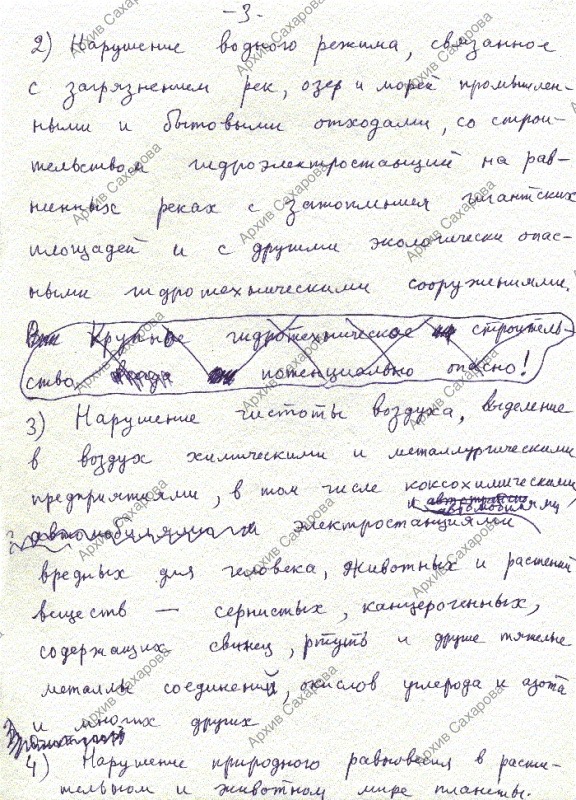 -3.
2) Нарушение водного режима, связанное
с загрязнением рек, озер и морей промышлен-
ными и бытовыми отходами, со строи-
тельством гидроэлектростанций на рав-
нинных реках с затоплением гигантских
площадей и с другими экологически опас-
ными гидротехническими сооружениями.
Крупное гидротехническое строитель-
ство потенциально опасно!
3) Нарушение чистоты воздуха, выделение
в воздух химическими и металлургическими
предприятиями, в том числе коксохимическими,
и автомобилями
электростанциями
вредных для человека, животных и растений
веществ — сернистых, канцерогенных,
содержащих свинец, ртуть и другие тяжелые
металлы соединений, окислов углерода и азота
и многих других
4) Нарушение природного равновесия в расти-
тельном и животном мире планеты.
Архив Сахарова